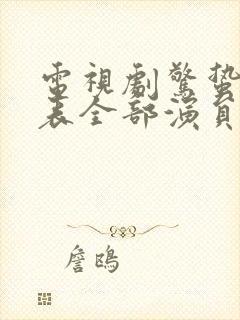 電視劇驚蟄
表全部演員
詹鴎